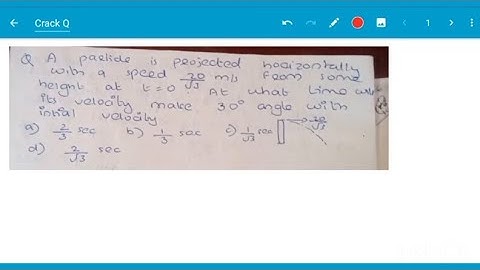 Crack Q
1
Q A particle is projected horizontally
with a speed 20/√3 m/s from some
height at t=0 At what time will
its velocity make 30° angle with
intial velocity
a) 2/3 sec b) 1/3 sec c) 1/√3 sec 20/√3
d) 2/√3 sec